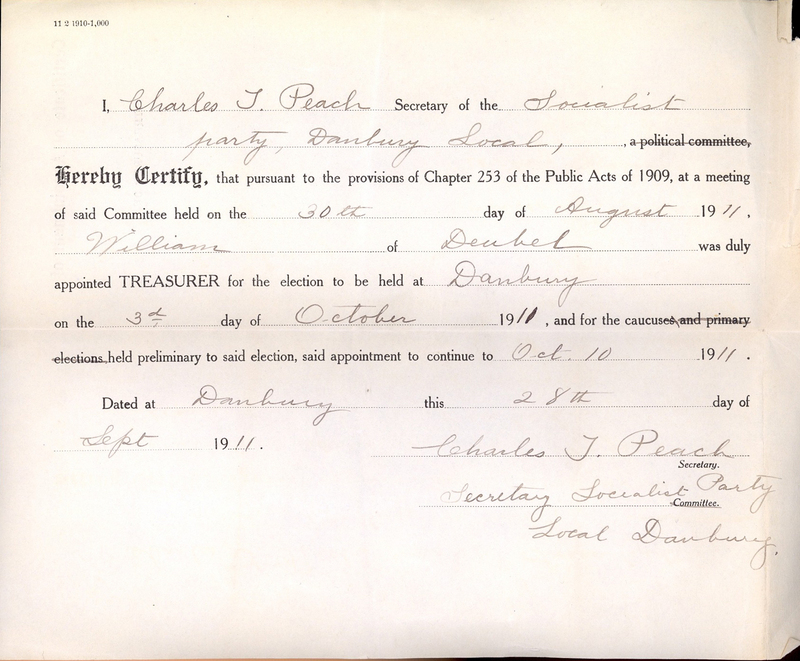 11 2 1910-1,000
I, Charles T. Peach Secretary of the Socialist
party, Danbury Local, , a political committee,
Hereby Certify, that pursuant to the provisions of Chapter 253 of the Public Acts of 1909, at a meeting
of said Committee held on the 30th day of August 1911,
William of Deubel was duly
appointed TREASURER for the election to be held at Danbury
on the 3d day of October 1911, and for the caucuses and primary
elections held preliminary to said election, said appointment to continue to Oct. 10 1911.
Dated at Danbury this 28th day of
Sept 1911. Charles T. Peach
Secretary.
Secretary Socialist Party
Committee.
Local Danbury.